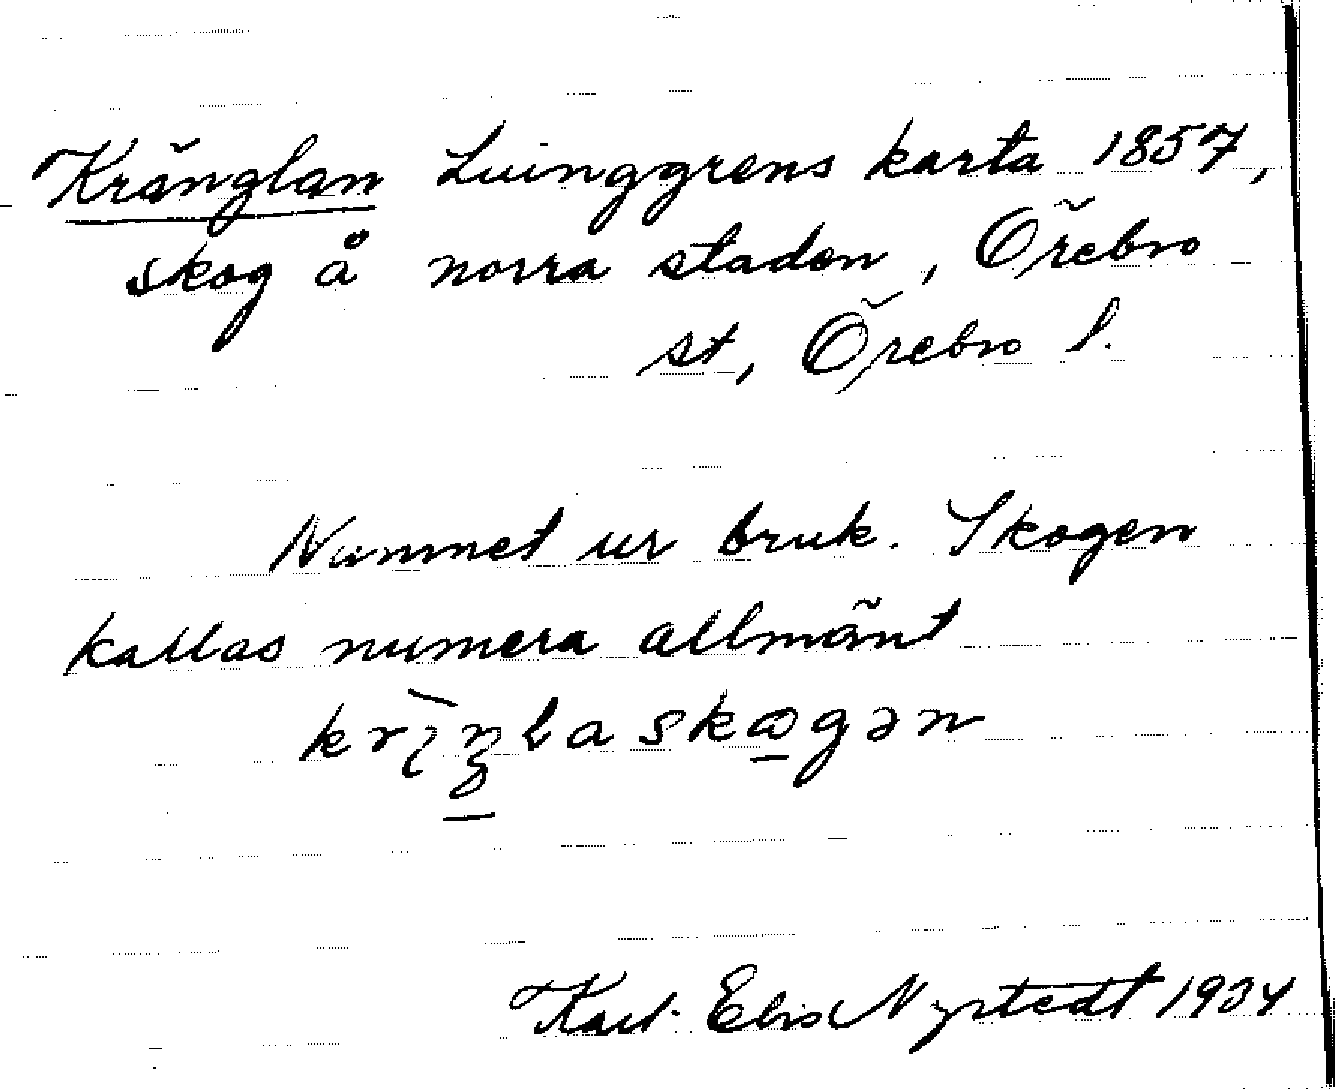 Kränglan Luinggrens karta 1857,
skog å norra staden, Örebro
st, Örebro l.
Nammet ur bruk. Skogen
kallas numera allmänt
kriŋlaskωgən
Karl-Elis Nystedt 1934